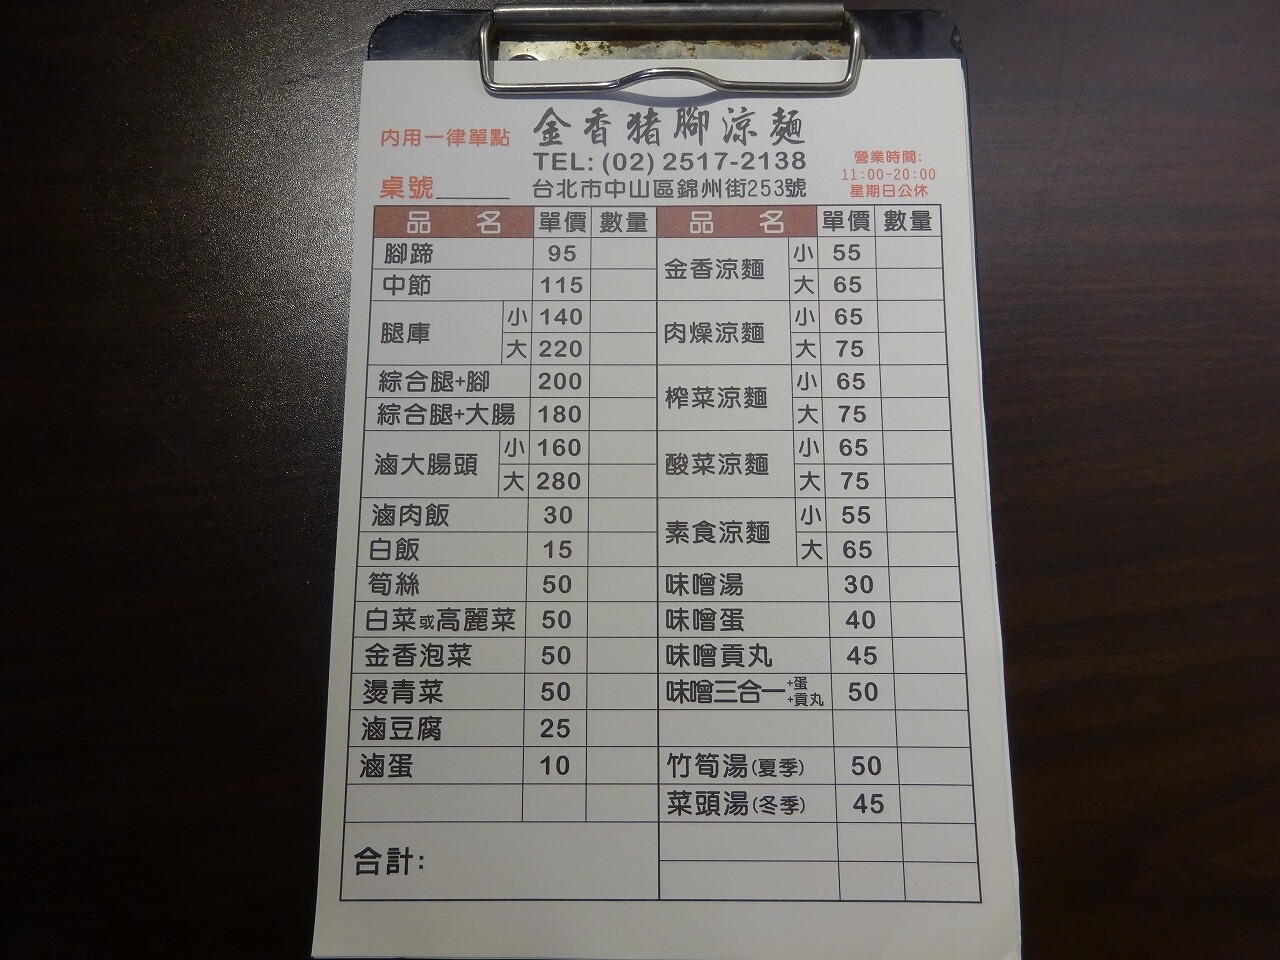 內用一律單點
金香豬腳涼麵
TEL: (02) 2517-2138
台北市中山區錦州街253號
營業時間:
11:00~20:00
星期日公休
桌號
品 名 單價 數量
腳蹄 95
中節 115
腿庫 小 140
大 220
綜合腿+腳 200
綜合腿+大腸 180
滷大腸頭 小 160
大 280
滷肉飯 30
白飯 15
筍絲 50
白菜或高麗菜 50
金香泡菜 50
燙青菜 50
滷豆腐 25
滷蛋 10
合計:
品 名 單價 數量
金香涼麵 小 55
大 65
肉燥涼麵 小 65
大 75
榨菜涼麵 小 65
大 75
酸菜涼麵 小 65
大 75
素食涼麵 小 55
大 65
味噌湯 30
味噌蛋 40
味噌貢丸 45
味噌三合一 +蛋 +貢丸 50
竹筍湯(夏季) 50
菜頭湯(冬季) 45